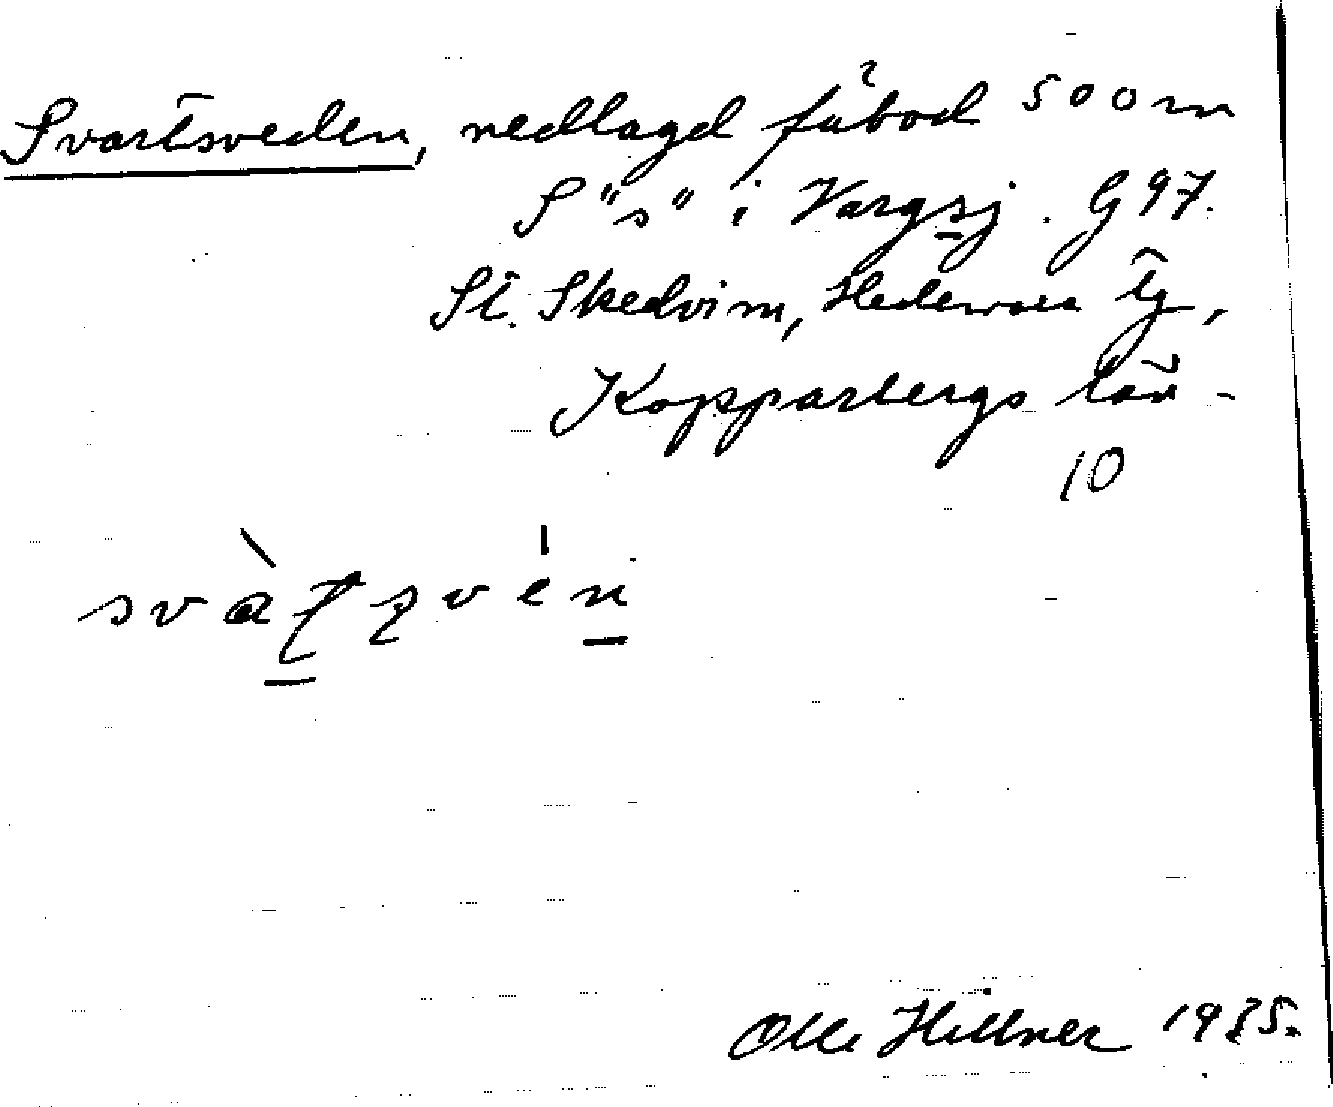 Svartsveden, nedlagd fäbod 500 m
S "s" i Vargsj. G 97.
St. Skedvi sn, Hedemora tg,
Kopparbergs län -
10
Olle Hillner 1935.